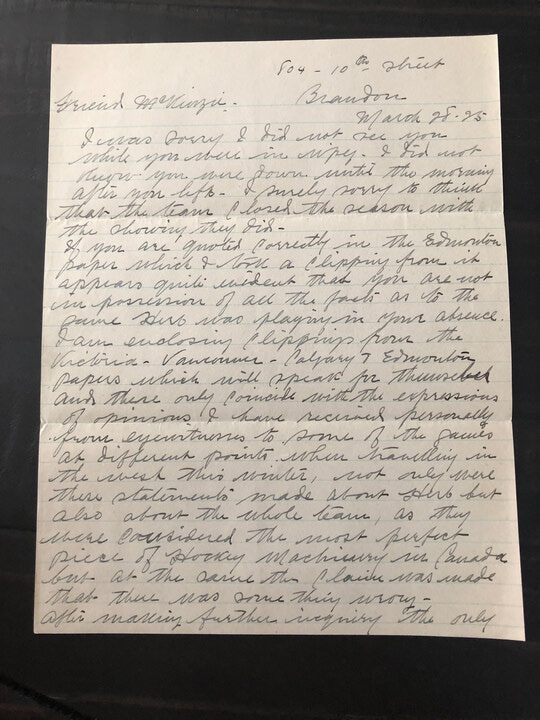 804 - 10th Street
Friend McKinzie. Brandon
March 28-25
I was sorry I did not see you
while you were in Wpeg. I did not
know you were down until the morning
after you left - I surely sorry to think
that the team closed the season with
the showing they did -
If you are quoted correctly in the Edmonton
paper which I took a clipping from it
appears quite evident that you are not
in possession of all the facts as to the
game Herb was playing in your absence.
I am enclosing clippings from the
Victoria - Vancouver - Calgary & Edmonton
papers which will speak for themselves
and these only coincide with the expressions
of opinions I have received personally
from eyewitnesses to some of the games
at different points when travelling in
the west this winter, not only were
these statements made about Herb but
also about the whole team, as they
were considered the most perfect
piece of Hockey Machinery in Canada
but at the same the claim was made
that there was some thing wrong -
after making further inquiry the only